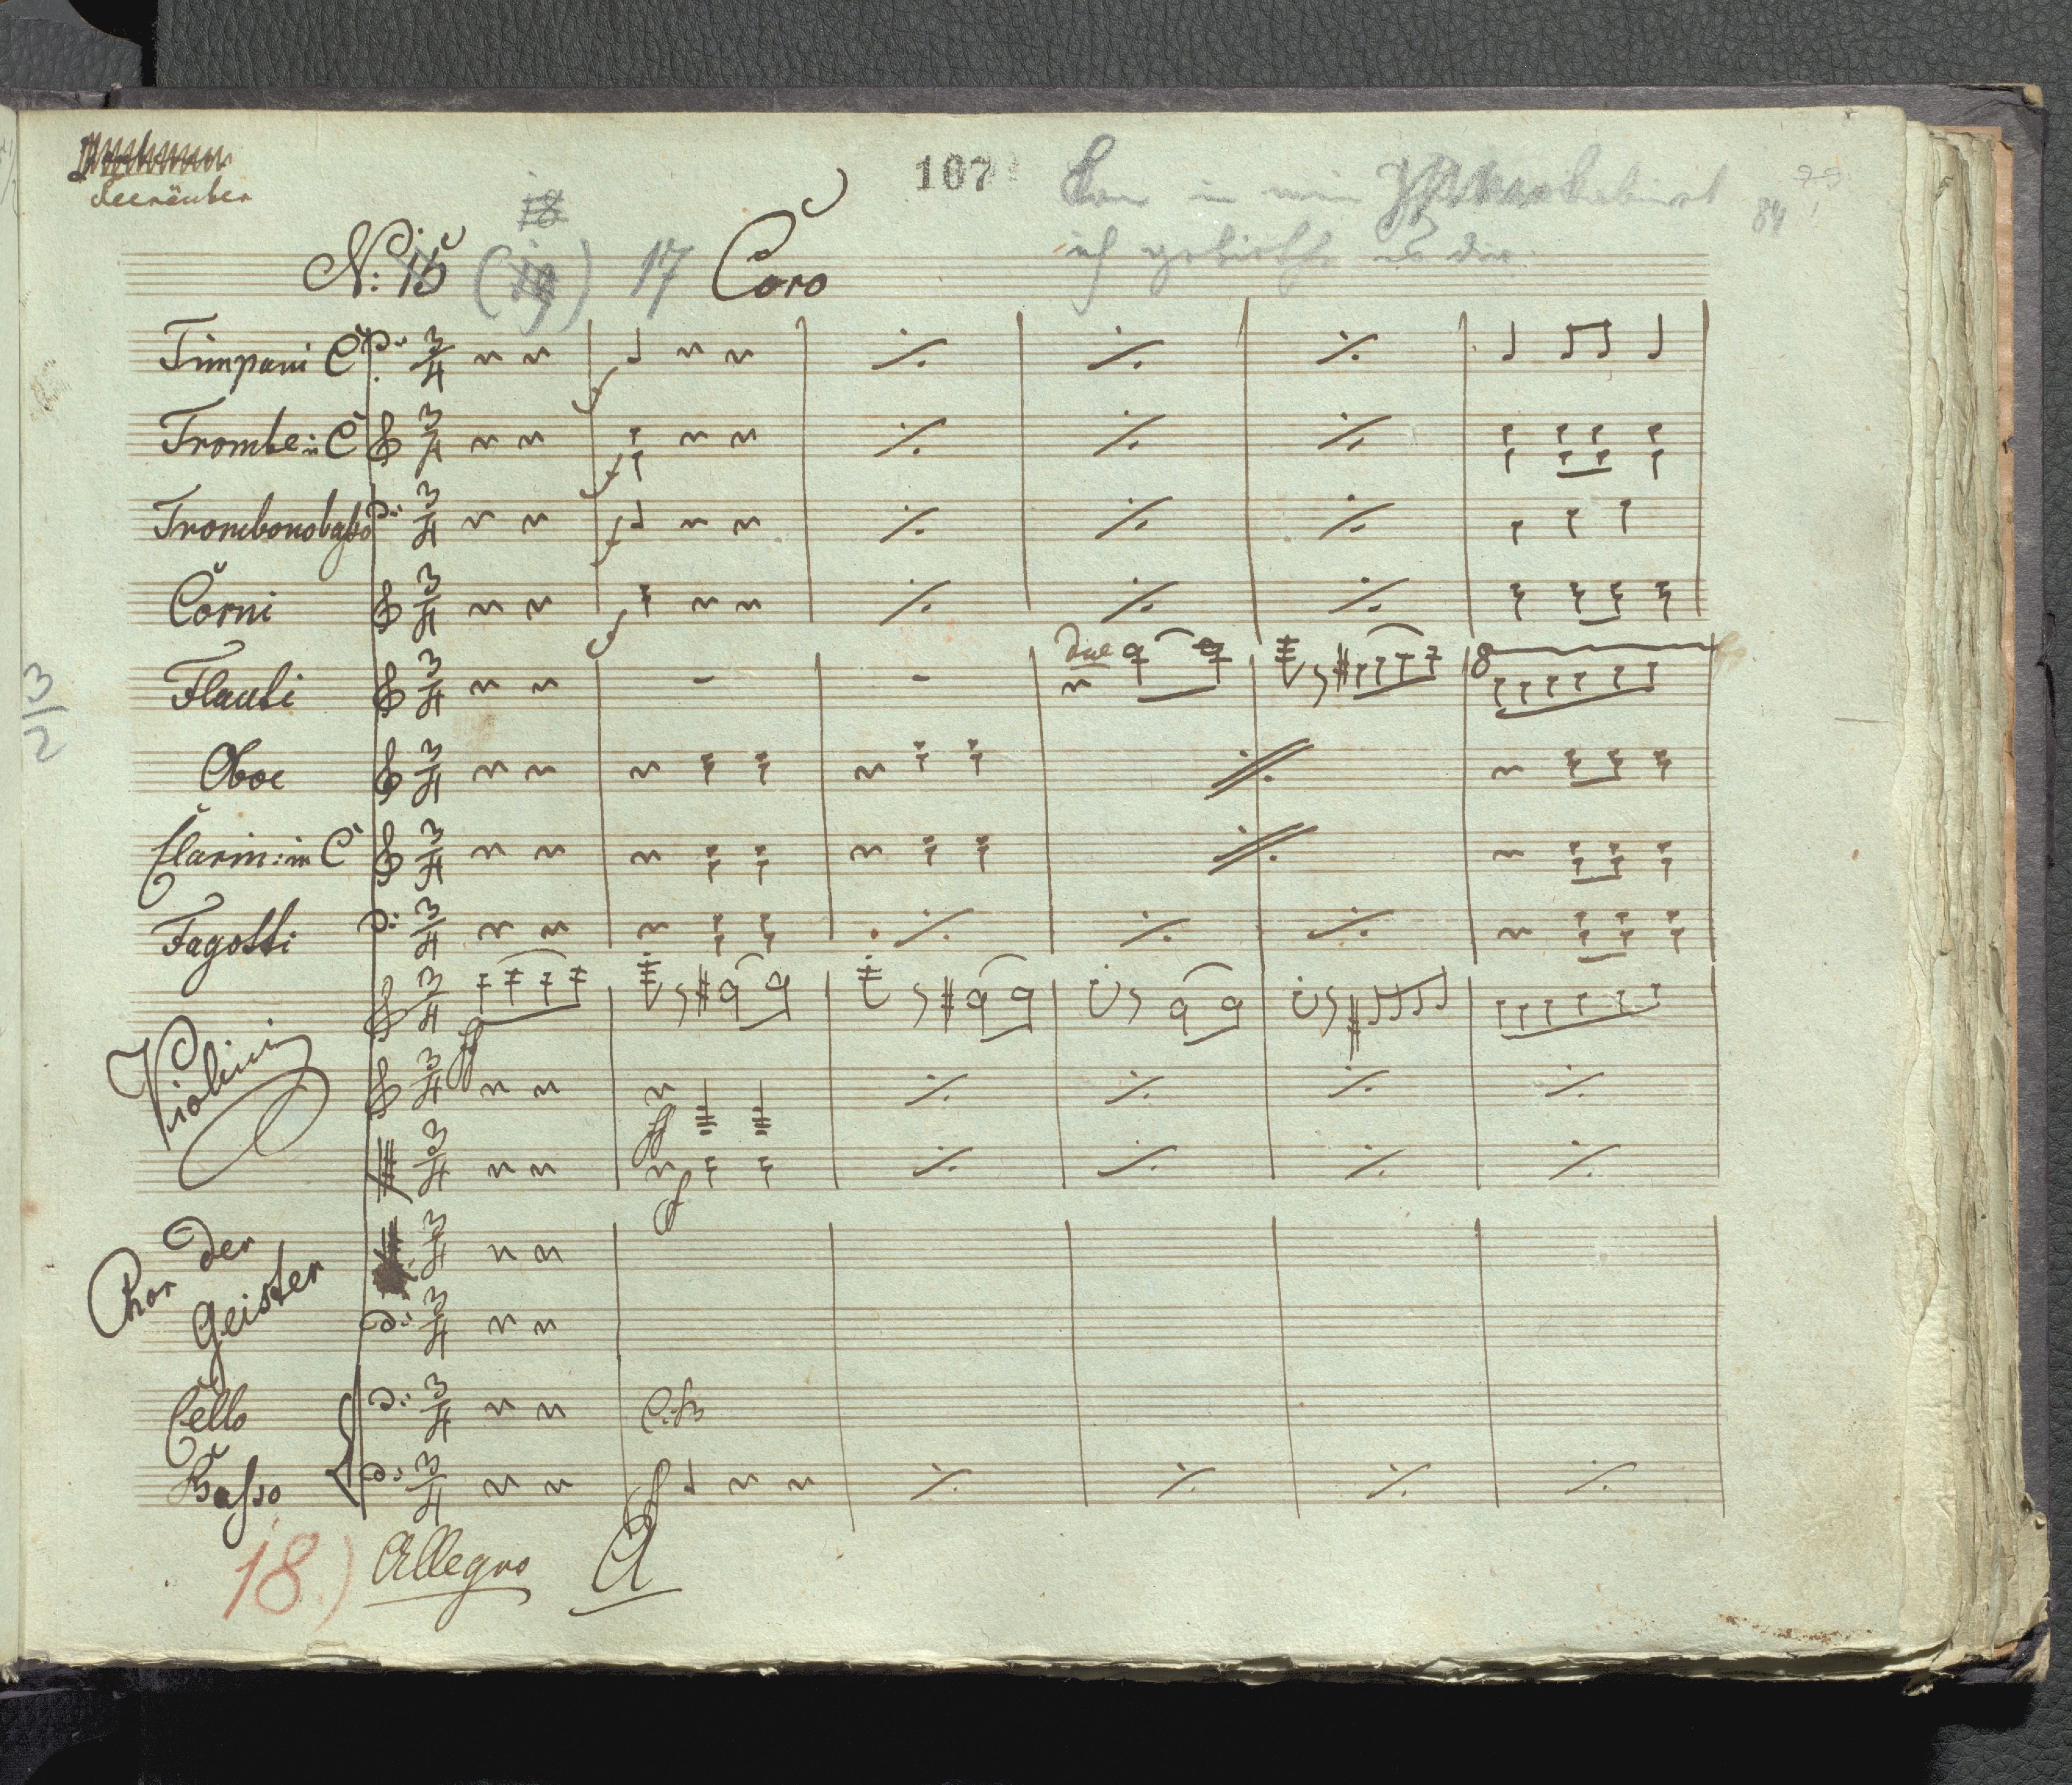 Seeräuber
107
18
84
N: 15 17 Coro
ich
Timpani C
Trombe in C
Trombonobasso
Corni
Flauti
due
8
Oboe
Clarin: in C
Fagotti
Violini
Chor der
Geister
Cello
Basso
18.) Allegro
3
2